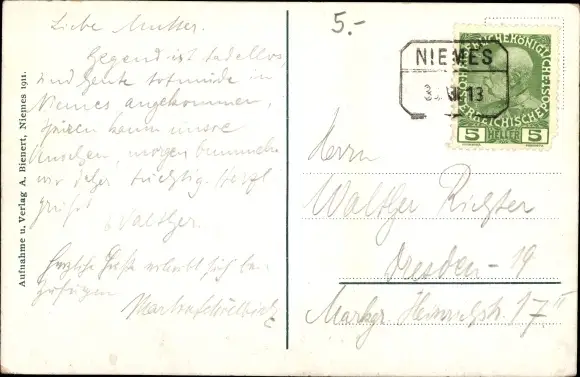 Liebe Mutter.
Gegend ist tadellos,
sind heute totmüde in
Niemes angekommen,
spüren kaum unsre
morgen bummeln
wir daher tüchtig. Herzl
grüßt
Walther.
Herzliche Grüße erlaubt sich bei-
zufügen
Martha
Aufnahme u. Verlag A. Bienert, Niemes 1911.
5.-
NIEMES
13
KAISERLICHE KÖNIGLICHE ÖSTERREICHISCHE POST
5 HELLER 5
Herrn
Walther Richter
Dresden - 19
Markgr. Heinrichstr. 17 II